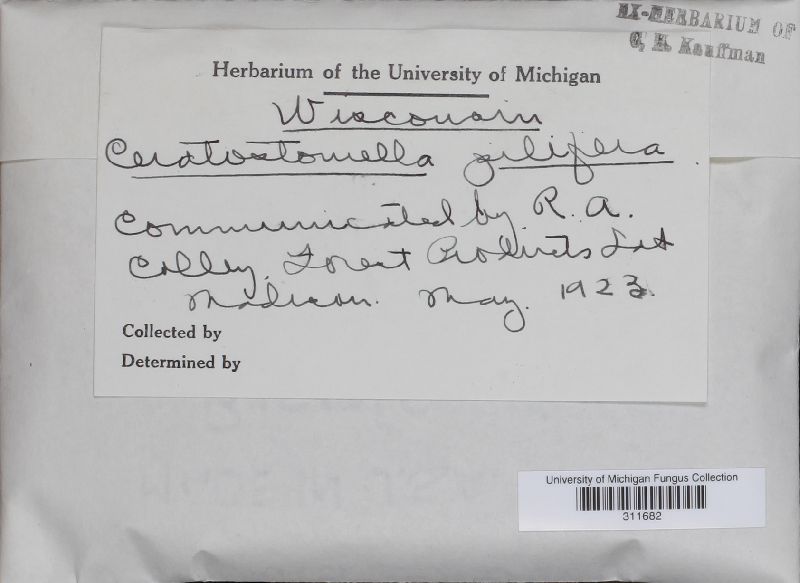 EX-HERBARIUM OF
C. H. Kauffman
Herbarium of the University of Michigan
Wisconsin
Ceratostomella pilifera.
Communicated by R. A.
Colley, Forest Products Lab
Madison. May. 1923.
Collected by
Determined by
University of Michigan Fungus Collection
311682